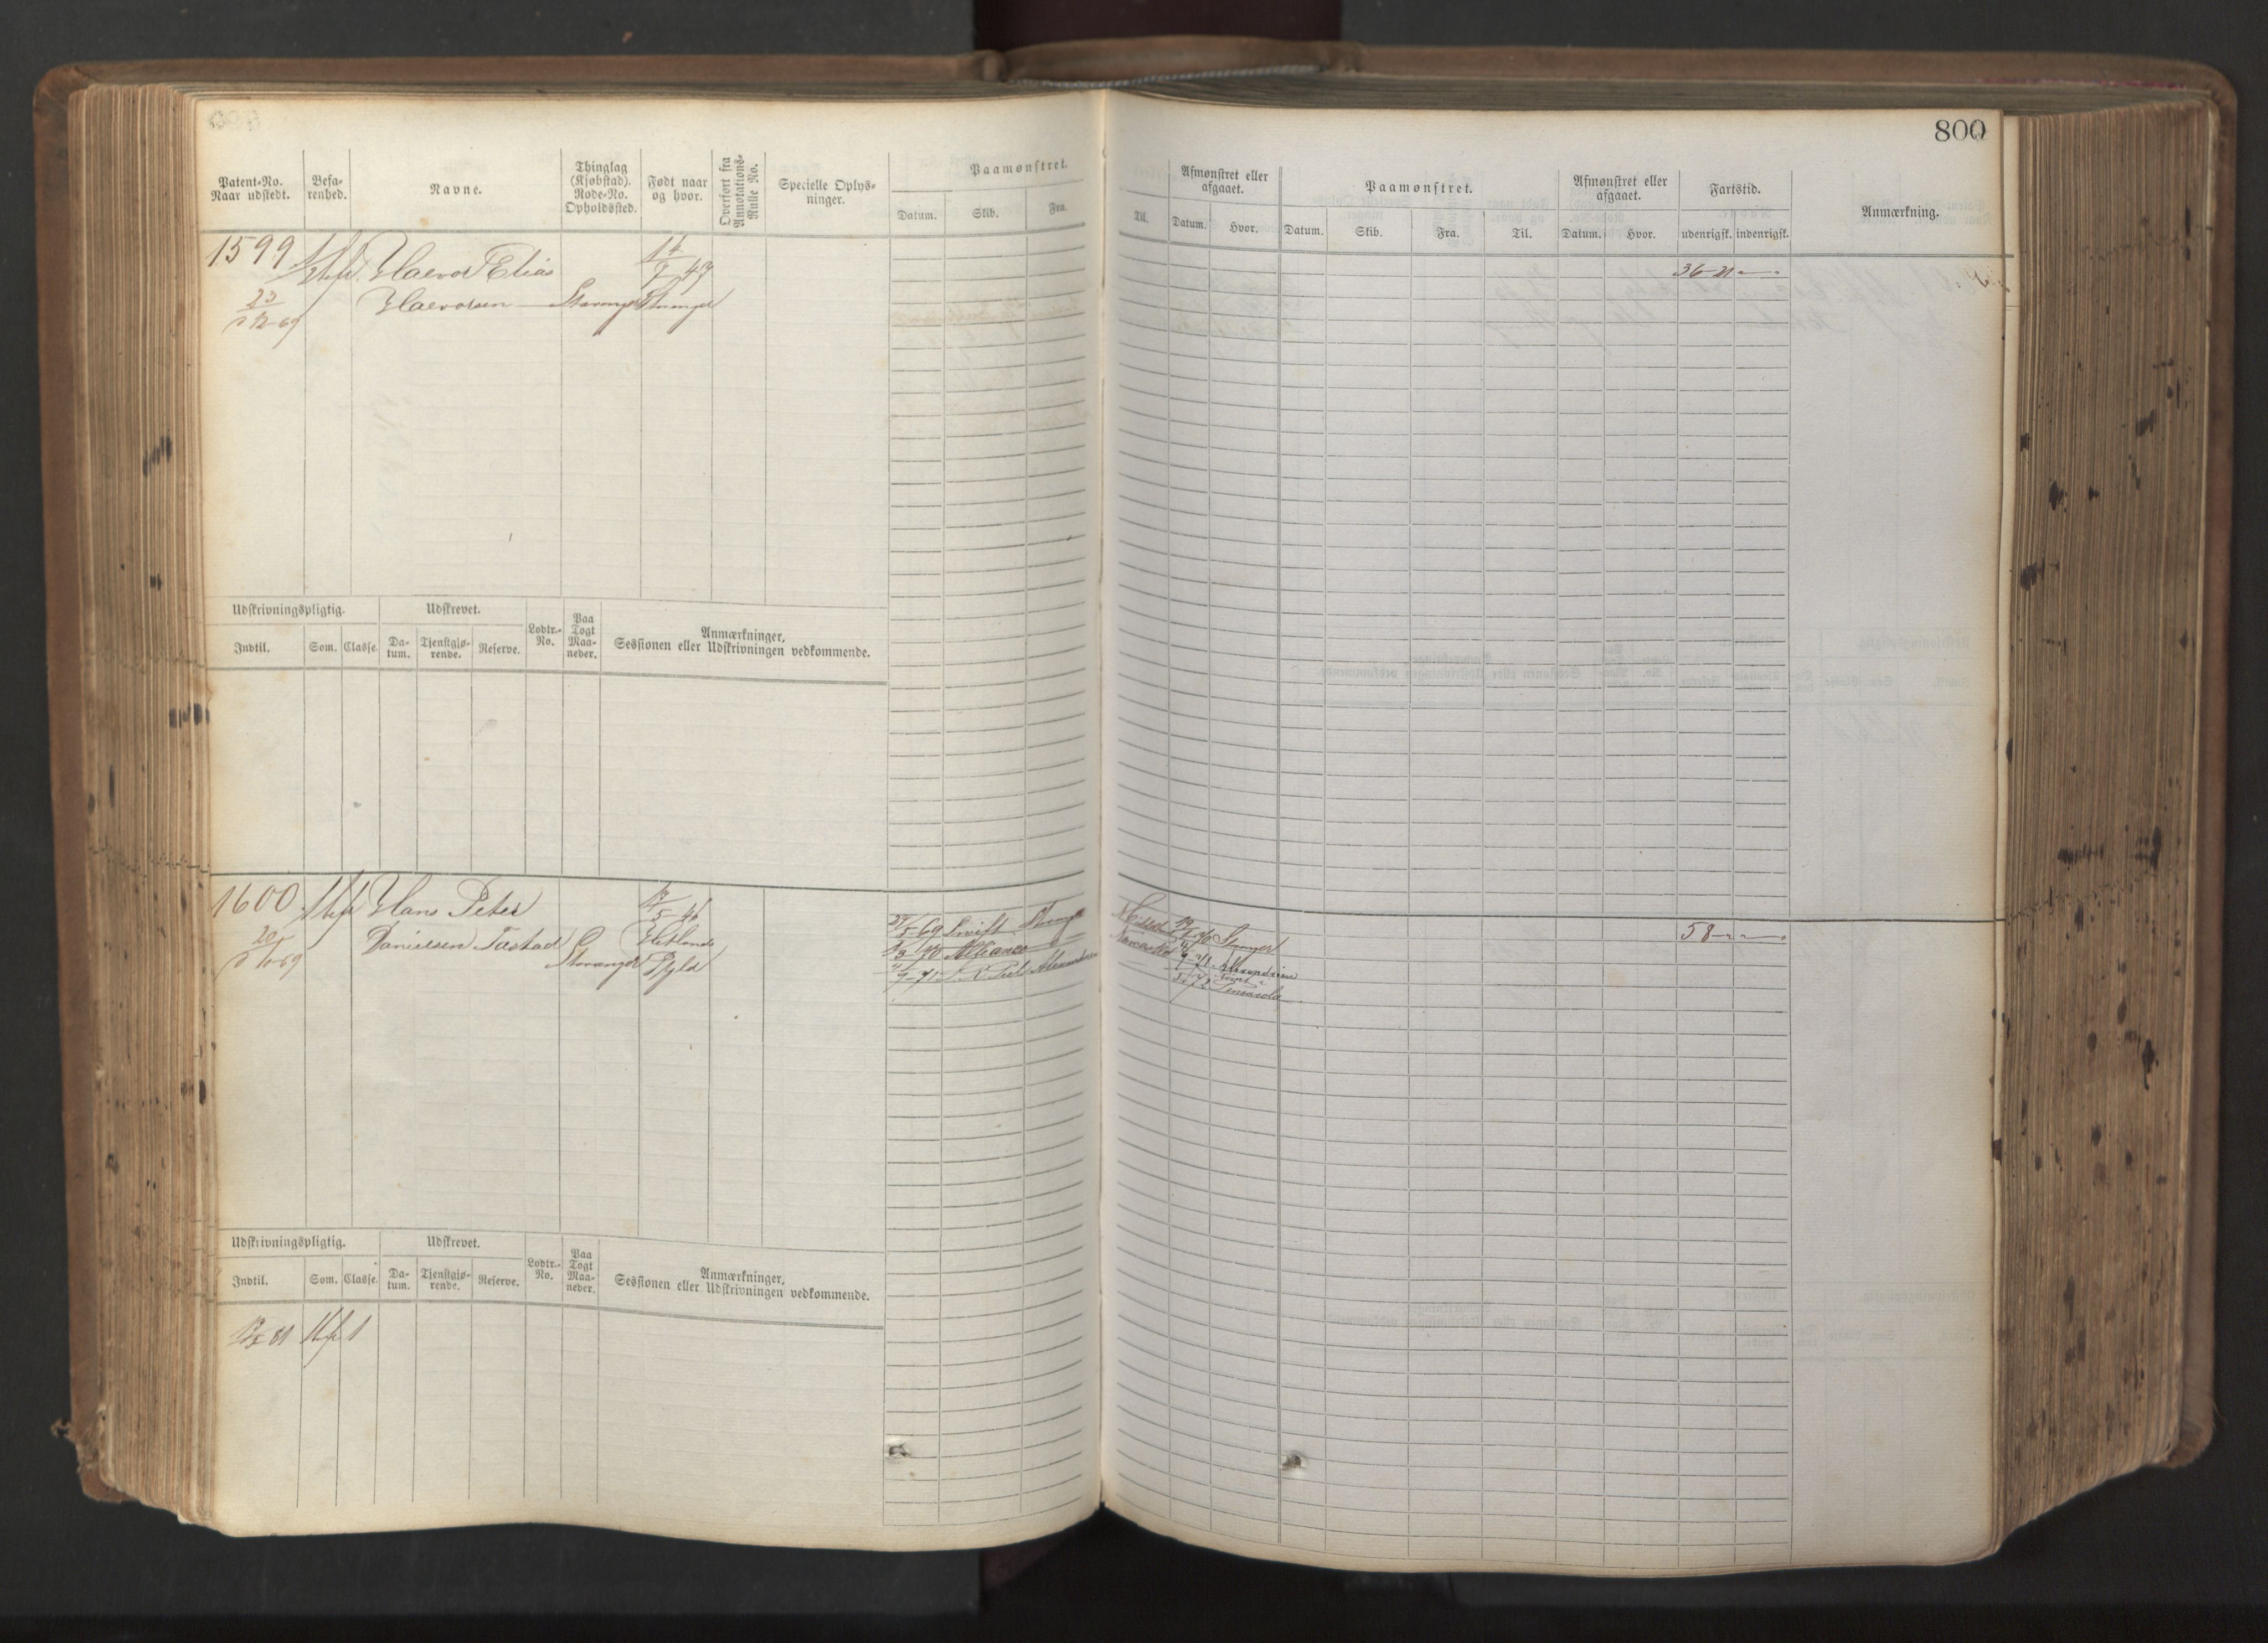 800
Patent-No. Naar udstedt.
Befarenhed.
Navne.
Thinglag (Kjøbstad). Rode-No. Opholdssted.
Født naar og hvor.
Overført fra Annotations-Rulle No.
Specielle Oplysninger.
Paamønstret.
Datum. Skib. Fra. Til.
Afmønstret eller afgaaet.
Datum. Hvor.
Paamønstret.
Datum. Skib. Fra. Til.
Afmønstret eller afgaaet.
Datum. Hvor.
Fartstid.
udenrigsk. indenrigsk.
Anmærkning.
1599 Haevor Elias 14/7 47 36-21
23/12 69 Haevorsen Stavanger Stavanger
Udskrivningspligtig. Udskrevet. Lodtr.-No. Paa Togt Maaneder. Anmærkninger, Sessionen eller Udskrivningen vedkommende.
Indtil. Som. Classe. Datum. Tjenstgjørende. Reserve.
1600 Hans Peter 5 46 58
Danielsen Tastad Stavanger Hetland
69 Swift Stavanger
70 Alliance
71 Alexandria
Newcastle
70 Stavanger
71 Alexandria
72 Pensacola
Udskrivningspligtig. Udskrevet. Lodtr.-No. Paa Togt Maaneder. Anmærkninger, Sessionen eller Udskrivningen vedkommende.
Indtil. Som. Classe. Datum. Tjenstgjørende. Reserve.
81 1